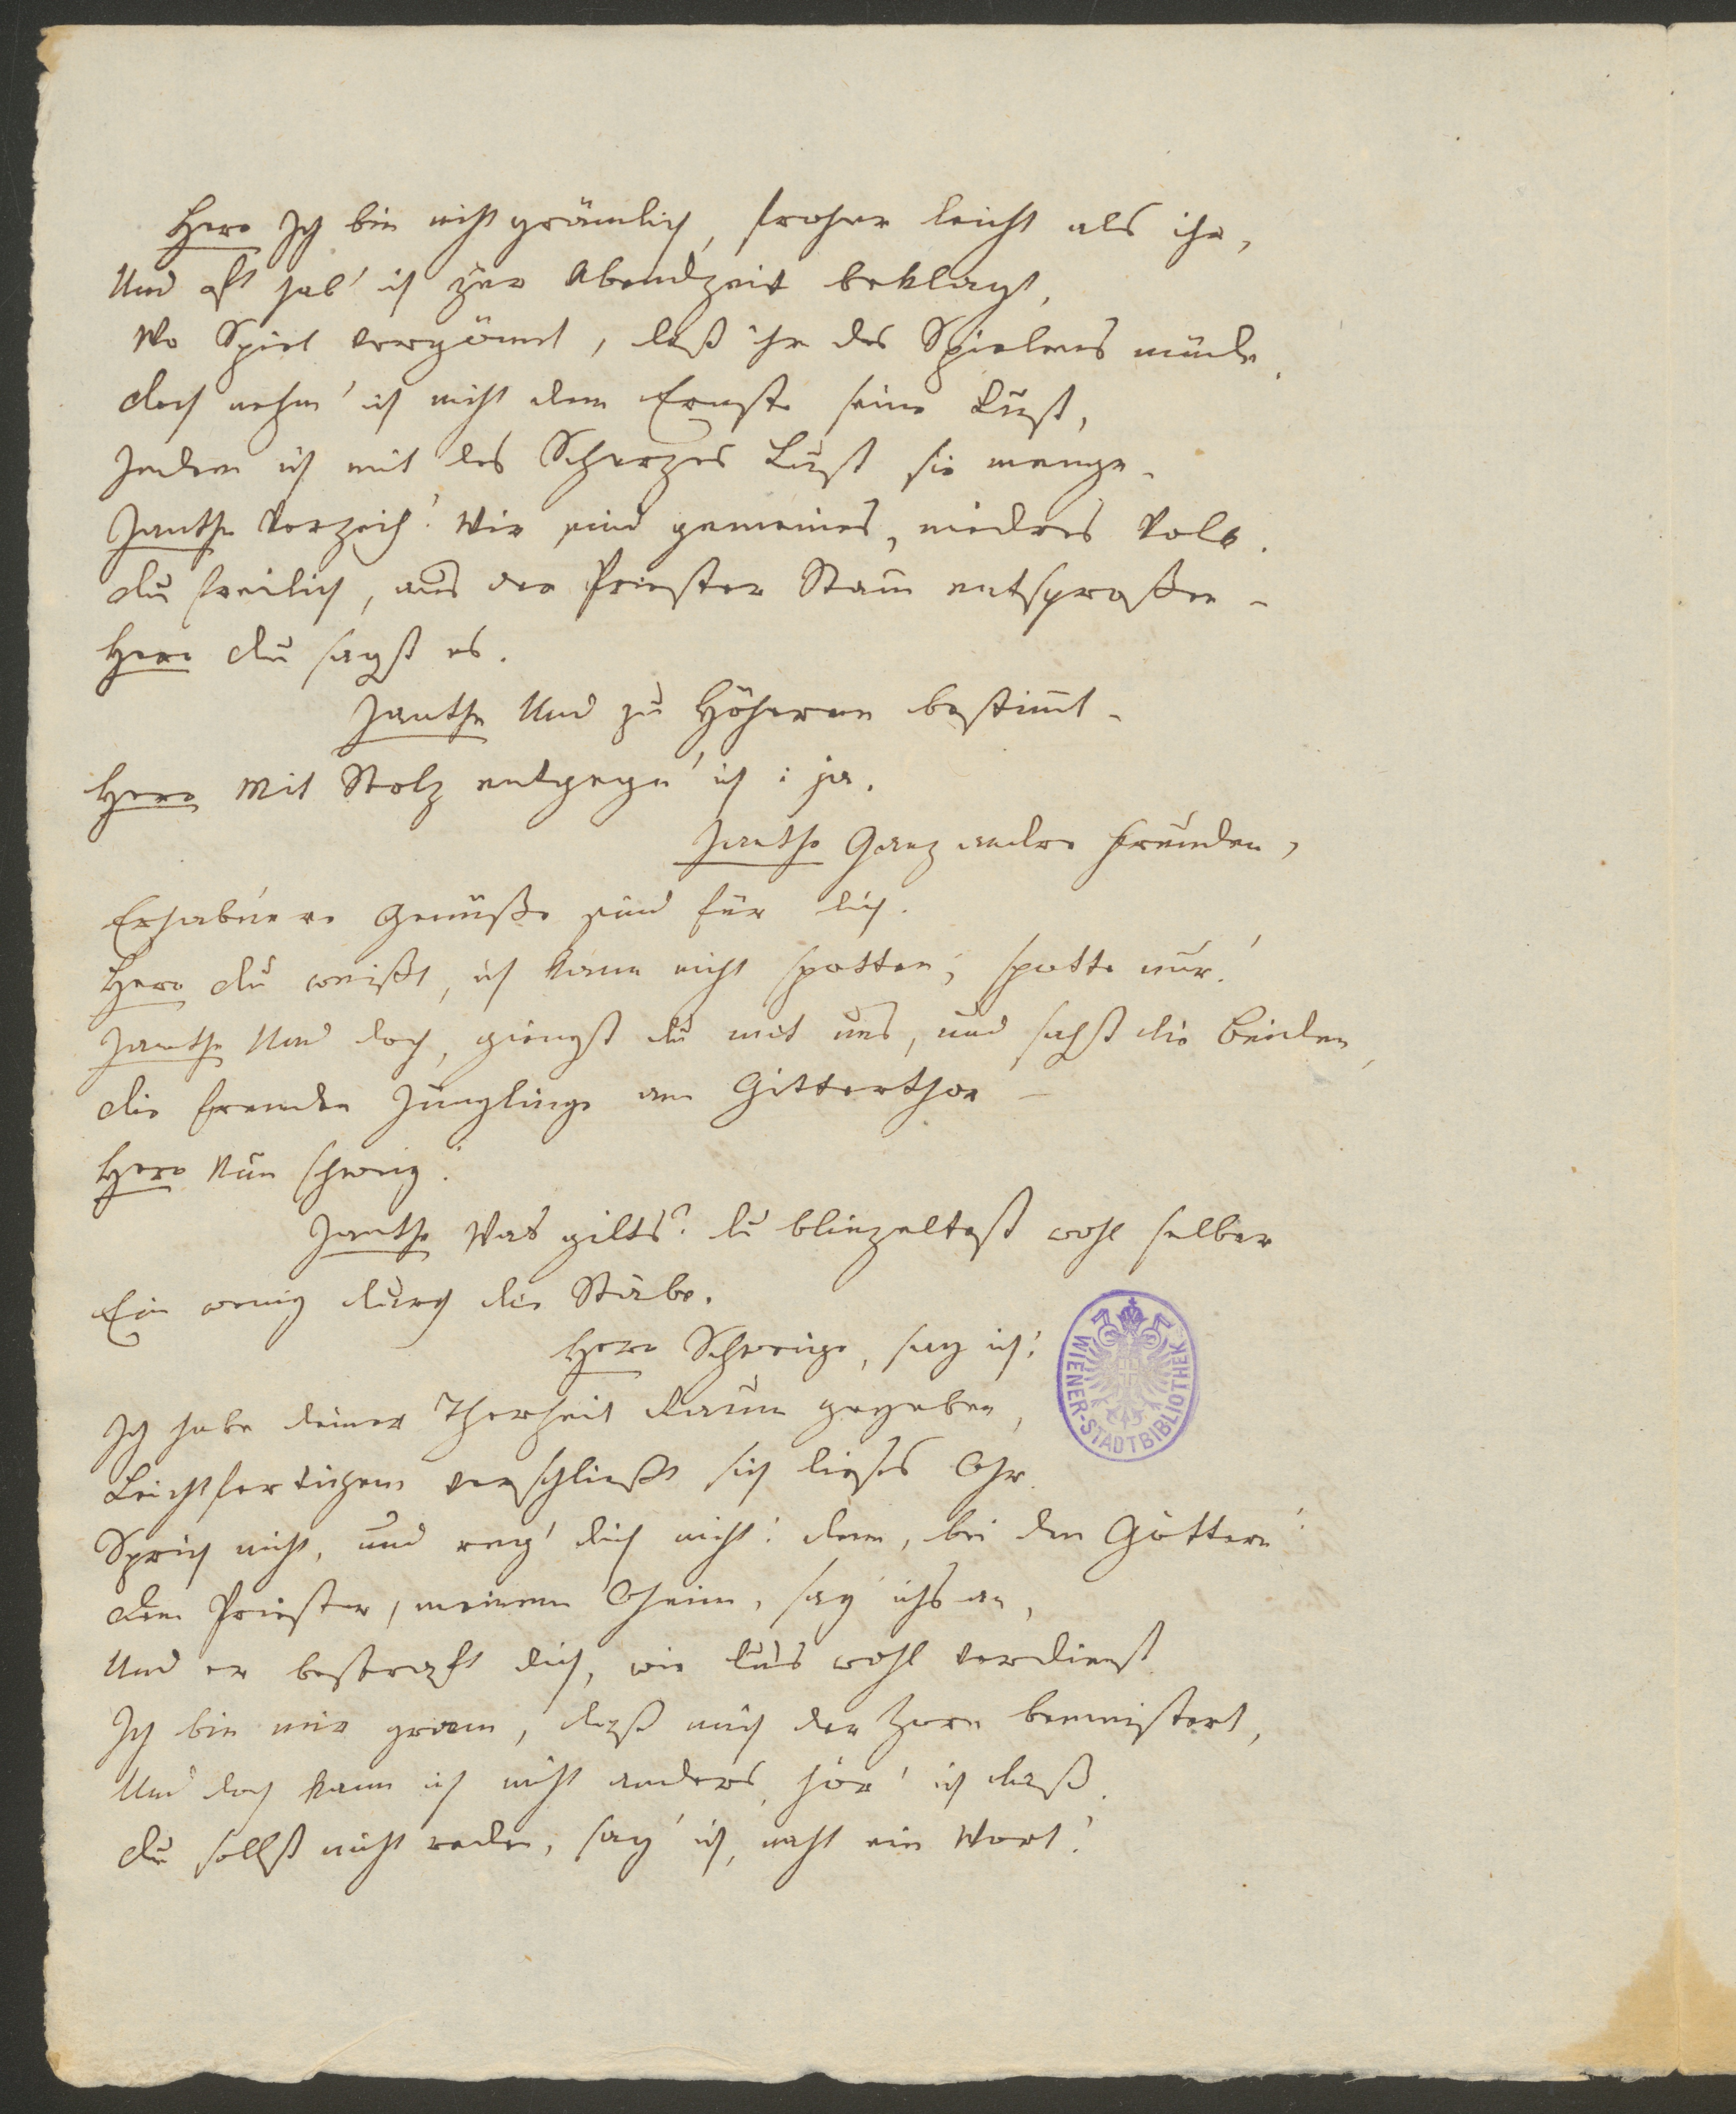 Hero Ich bin nicht grämlich, froher leicht als ihr,
Und oft hab' ich zur Abendzeit beklagt,
Wo Spiel vergönnt, daß ihr des Spielens müde.
Doch nehm' ich nicht dem Ernste seine Lust,
Indem ich mit des Scherzes Lust sie menge.
Janthe Verzeih! Wir sind gemeines, niedres Volk.
Du freilich, aus der Priester Stam̅ entsproßen –
Hero Du sagst es.
Janthe Und zu Höherem bestim̅t –
Hero Mit Stolz entgegn' ich: ja.
Janthe Ganz andre Freuden,
Erhabnere Genüße sind für dich.
Hero Du weißt, ich kann nicht spotten; spotte nur!
Janthe Und doch, giengst du mit uns, und sahst die beiden,
Die fremden Jünglinge am Gitterthor –
Hero Nun schweig!
Janthe Was gilts? du blinzeltest wohl selber
Ein wenig durch die Stäbe.
Hero Schweige, sag ich!
Ich habe deiner Thorheit Raum gegeben,
Leichtfertigem verschließt sich dieses Ohr.
Sprich nicht, und reg' dich nicht! denn, bei den Göttern!
Dem Priester, meinem Oheim, sag' ichs an,
Und er bestraft dich, wie dus wohl verdienst.
Ich bin mir gram, daß mich der Zorn bemeistert,
Und doch kann ich nicht anders, hör' ich dieß.
Du sollst nicht reden, sag' ich, nicht ein Wort!
WIENER-STADTBIBLIOTHEK